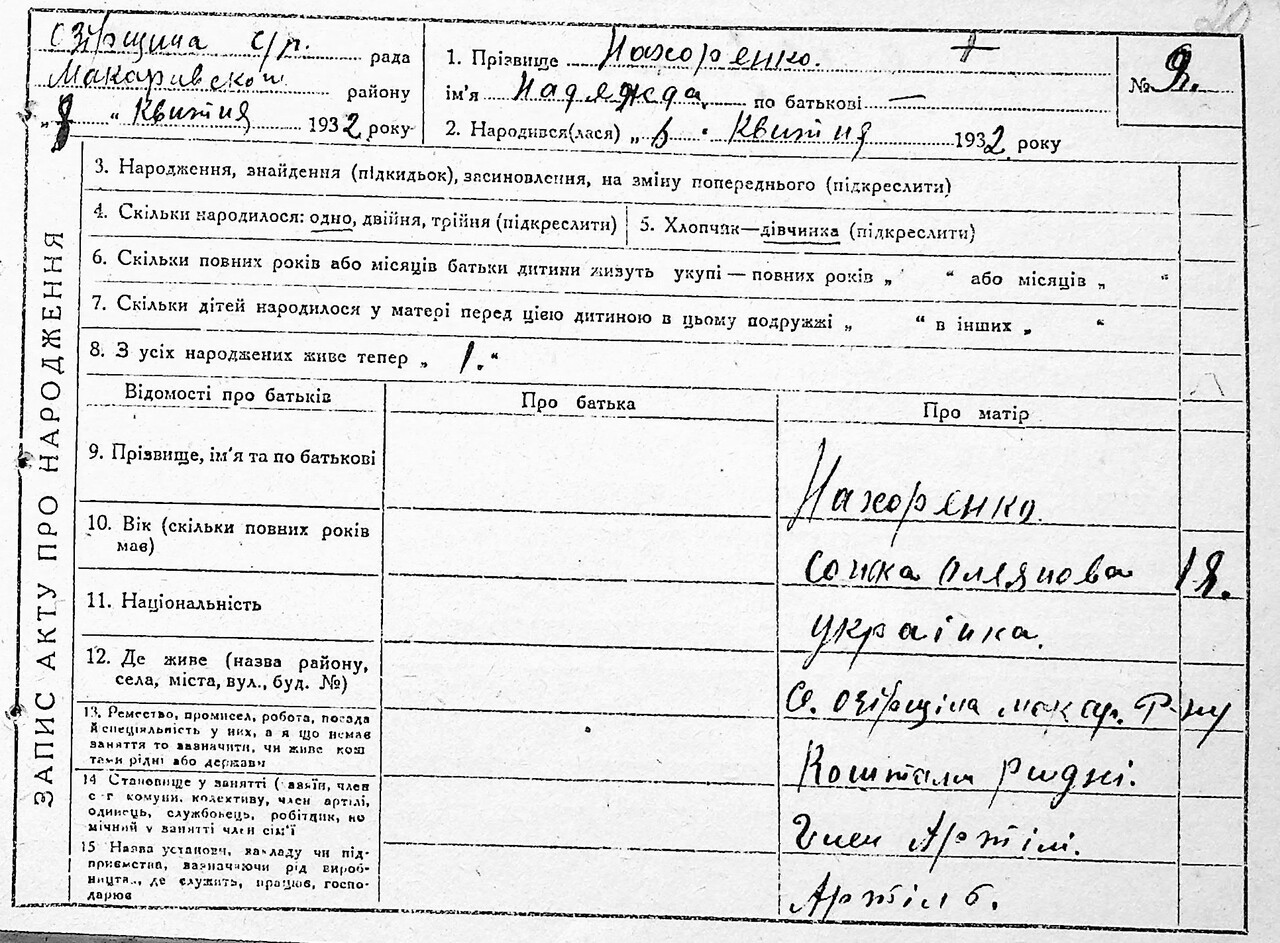 20
Озірщина с/р. рада
Макаривской району
" 8 " Квитня 1932 року
1. Прізвище Нахоренко.
ім'я Надежда по батькові —
2. Народився(лася) " Квитня 1932 року
№ 9.
ЗАПИС АКТУ ПРО НАРОДЖЕННЯ
3. Народження, знайдення (підкидьок), засиновлення, на зміну попереднього (підкреслити)
4. Скільки народилося: одно, двійня, трійня (підкреслити)
5. Хлопчик—дівчинка (підкреслити)
6. Скільки повних років або місяців батьки дитини живуть укупі — повних років „ “ або місяців „ “
7. Скільки дітей народилося у матері перед цією дитиною в цьому подружжі „ “ в інших „ “
8. З усіх народжених живе тепер „ 1. “
Відомості про батьків
Про батька
Про матір
9. Прізвище, ім'я та по батькові
Нахоренко
10. Вік (скільки повних років
має)
Сонка 18.
11. Національність
українка.
12. Де живе (назва району,
села, міста, вул., буд. №)
С. Озірщина макар. Р-ну
13. Ремество, промисел, робота, посада
й спеціяльність у них, а я що немає
заняття то зазначити, чи живе кош
тами рідні або держави
Коштами ридні.
14 Становище у занятті ( азяїн, член
с г комуни, колективу, член артілі,
одинець, службовець, робітник, по
мічний у занятті член сім'ї
Член Артілі.
15 Назва установи, закладу чи під-
приємства, зазначаючи рід вироб-
ництва, де служить, працює, госпо-
дарює
Артіль б.